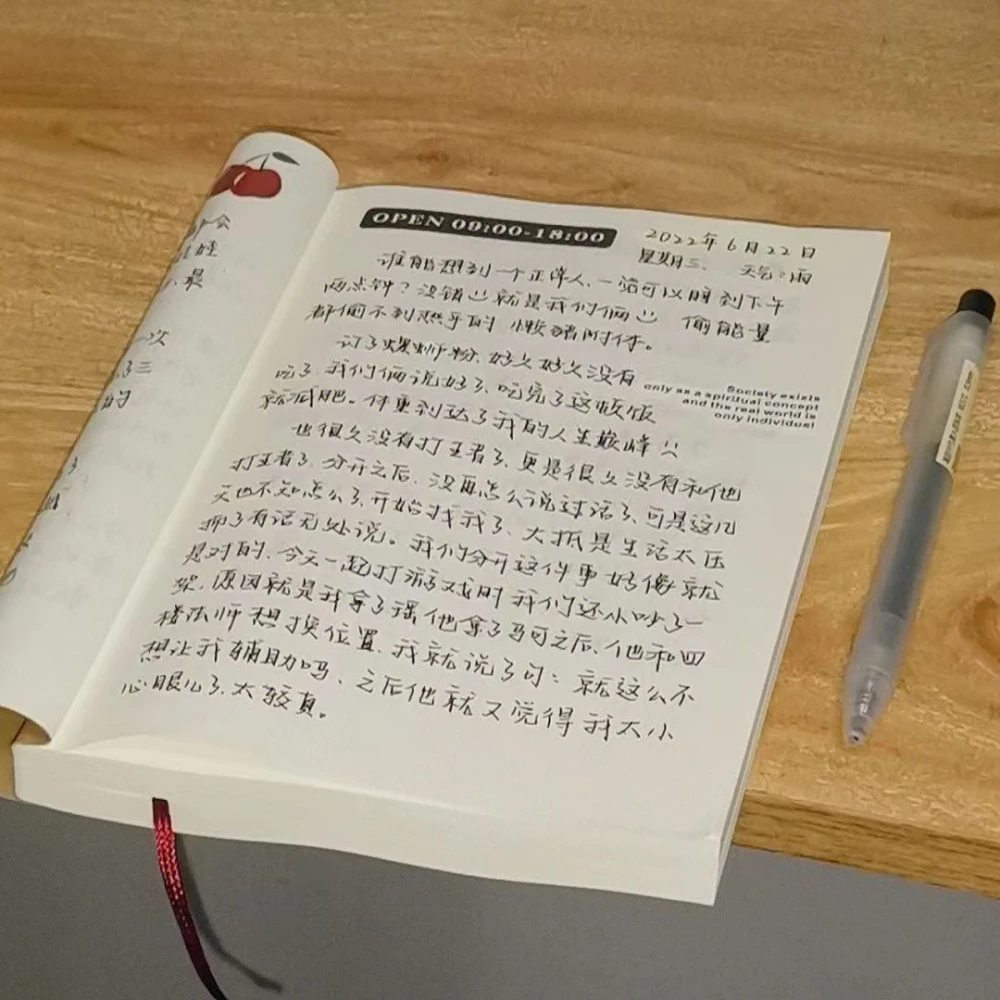 OPEN 09:00-18:00
2022年6月22日
星期三、 天气:雨
谁能想到一个正常人、一觉可以睡到下午
两点钟?没错就是我们俩 偷能量
都偷不到熬乎的 懒猪附体。
订了螺蛳粉、好久好久没有
吃了我们俩说好了、吃完了这顿饭
就减肥。体重到达了我的人生巅峰
Society exists
only as a spiritual concept
and the real world is
only individual
也很久没有打王者了、更是很久没有和他
打王者了、分开之后、没再怎么说过话了、可是这几
天也不知怎么了、开始找我了、大抵是生活太压
抑了有话无处说。我们分开这件事好像就
是对的、今天一起打游戏时我们还小吵了一
架、原因就是我拿了瑶他拿了马可之后、他和四
楼法师想换位置、我就说了句:就这么不
想让我辅助吗、之后他就又觉得我太小
心眼儿了、太较真。
会
娃
最
次
三
的